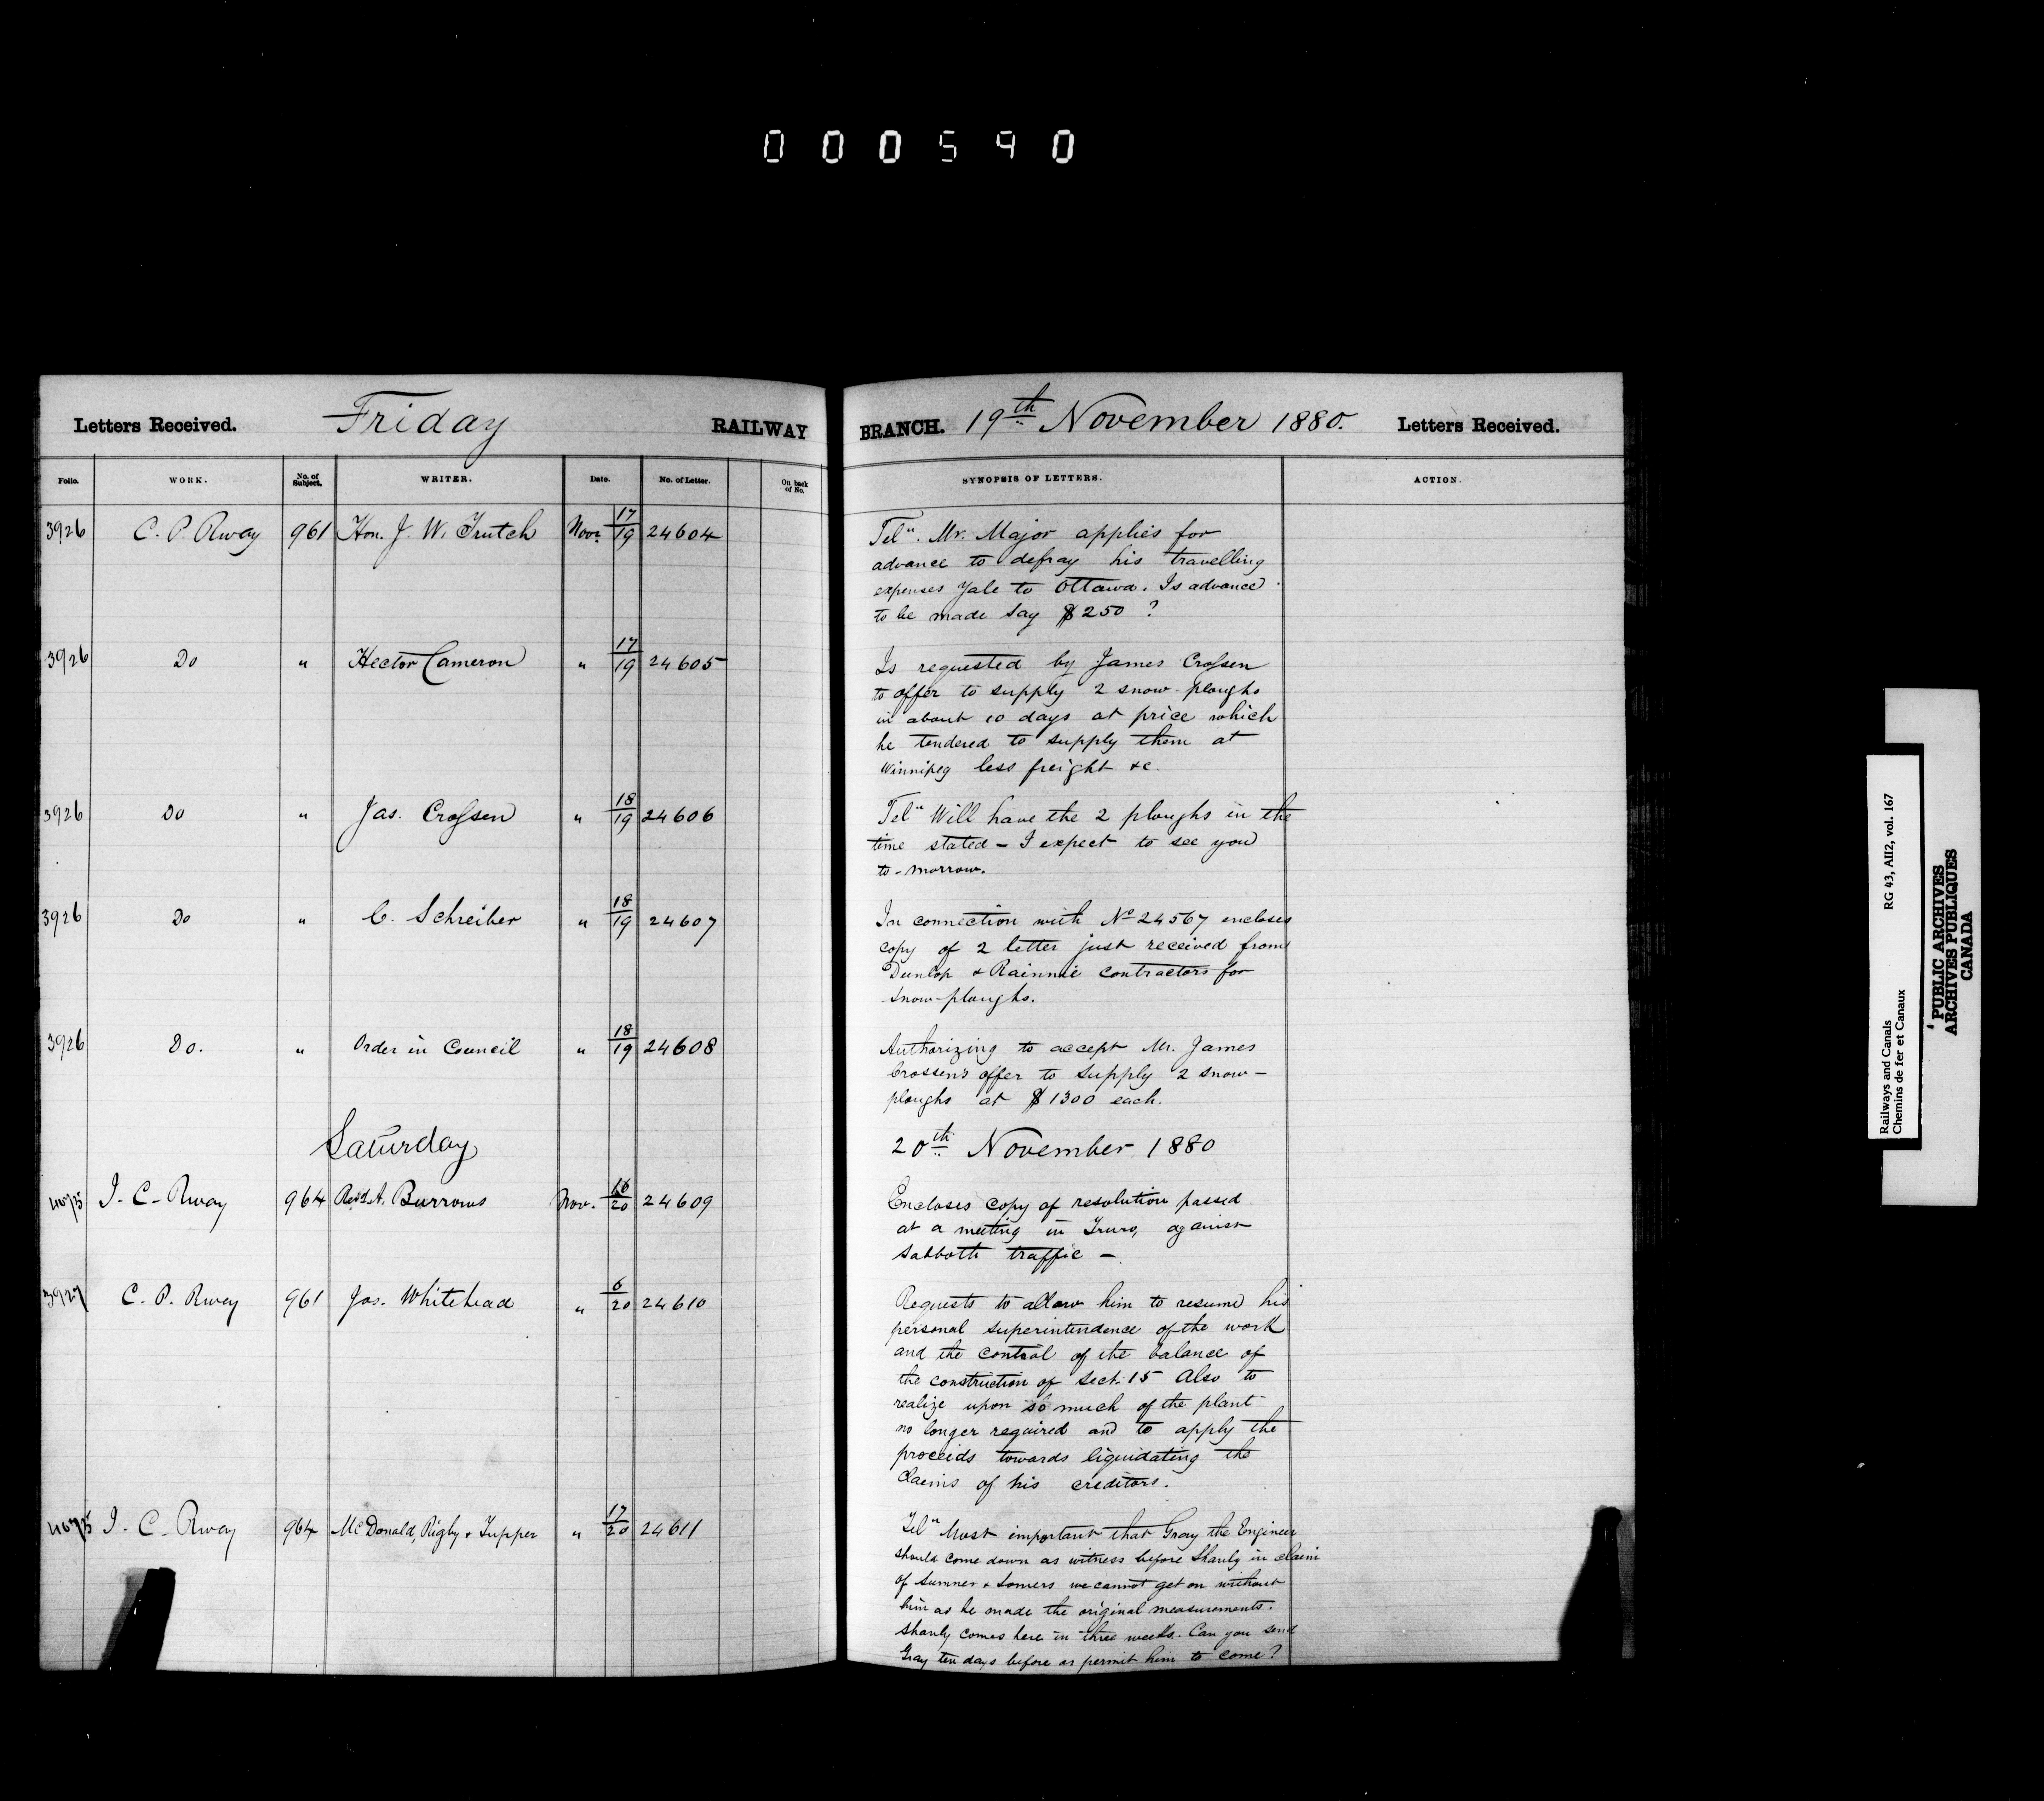 000590
Letters Received. Friday RAILWAY BRANCH. 19th November 1880. Letters Received.
Folio. WORK. No. of Subject. WRITER. Date. No. of Letter. On back of No. SYNOPSIS OF LETTERS. ACTION.
3926 C. P. Rway 961 Hon. J. W. Trutch Novr. 17/19 24604
Tel". Mr. Major applies for
advance to defray his travelling
expenses Yale to Ottawa. Is advance
to be made say $250 ?
3926 Do " Hector Cameron " 17/19 24605
Is requested by James Crossen
to offer to supply 2 snow-ploughs
in about 10 days at price which
he tendered to supply them at
Winnipeg less freight &c.
3926 Do " Jas. Crossen " 18/19 24606
Tel" Will have the 2 ploughs in the
time stated - I expect to see you
to-morrow.
3926 Do " C. Schreiber " 18/19 24607
In connection with No 24567 encloses
copy of 2 letter just received from
Dunlop & Rainnie contractors for
snow-ploughs.
3926 Do. " Order in Council " 18/19 24608
Authorizing to accept Mr. James
Crossen's offer to supply 2 snow-
ploughs at $1300 each.
Saturday 20th November 1880
4075 I. C. Rway 964 Revd. A. Burrows Nov. 16/20 24609
Encloses copy of resolution passed
at a meeting in Truro, against
Sabbath traffic -
3927 C. P. Rway 961 Jos. Whitehead " 6/20 24610
Requests to allow him to resume his
personal superintendence of the work
and the control of the balance of
the construction of Sect. 15 Also to
realize upon so much of the plant
no longer required and to apply the
proceeds towards liquidating the
claims of his creditors.
4075 I. C. Rway 964 McDonald, Rigby & Tupper " 17/20 24611
Tel" Most important that Gray the Engineer
should come down as witness before Shanly in claim
of Sumner & Somers we cannot get on without
him as he made the original measurements.
Shanly comes here in three weeks. Can you send
Gray ten days before or permit him to come?
Railways and Canals RG 43, AII2, vol. 167
Chemins de fer et Canaux
PUBLIC ARCHIVES
ARCHIVES PUBLIQUES
CANADA